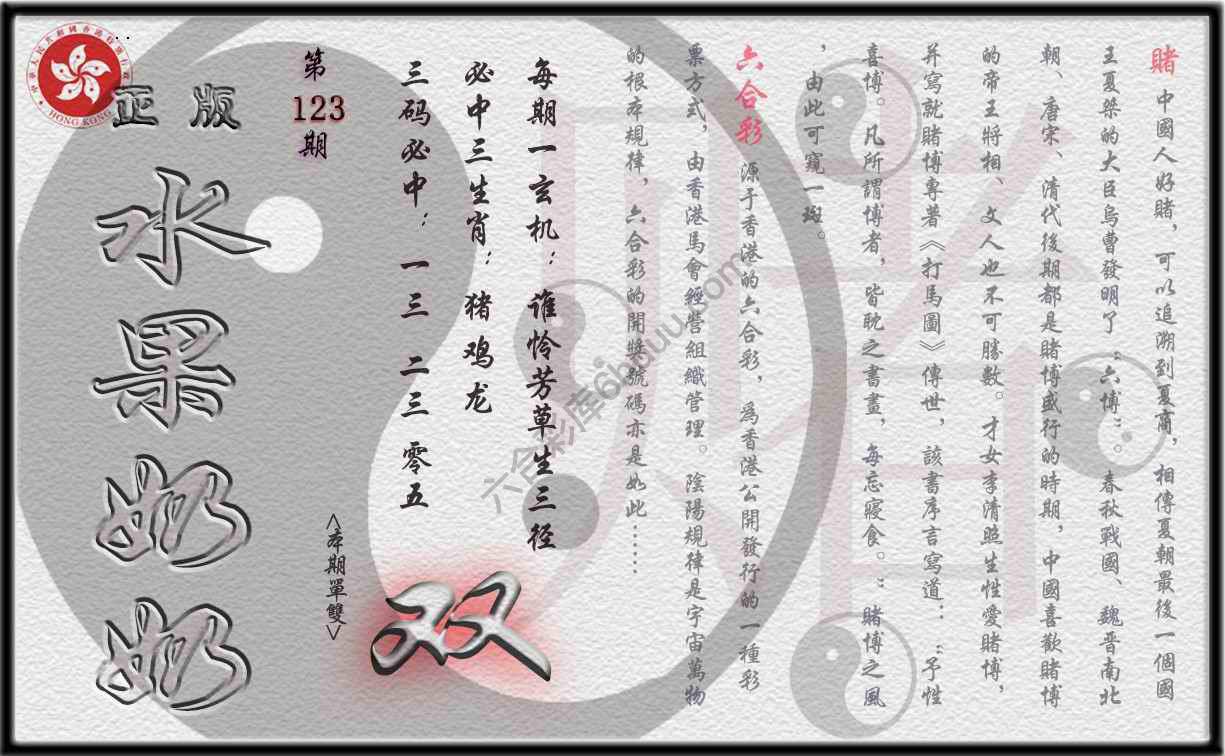 賭中國人好賭，可以追溯到夏商，相傳夏朝最後一個國
王夏桀的大臣烏曹發明了“六博”。春秋戰國、魏晋南北
朝、唐宋、清代後期都是賭博盛行的時期，中國喜歡賭博
的帝王將相、文人也不可勝數。才女李清照生性愛賭博，
并寫就賭博專著《打馬圖》傳世，該書序言寫道：“予性
喜博。凡所謂博者，皆耽之書畫，每忘寢食。”賭博之風
，由此可窺一斑。
六合彩源于香港的六合彩，爲香港公開發行的一種彩
票方式，由香港馬會經營組織管理。陰陽規律是宇宙萬物
的根本規律，六合彩的開獎號碼亦是如此……
每期一玄机：谁怜芳草生三径
必中三生肖：猪鸡龙
三码必中：一三 二三 零五
<本期單雙>
双
第
123
期
正版
水果奶奶
HONG KONG
六合彩库6hduu.com